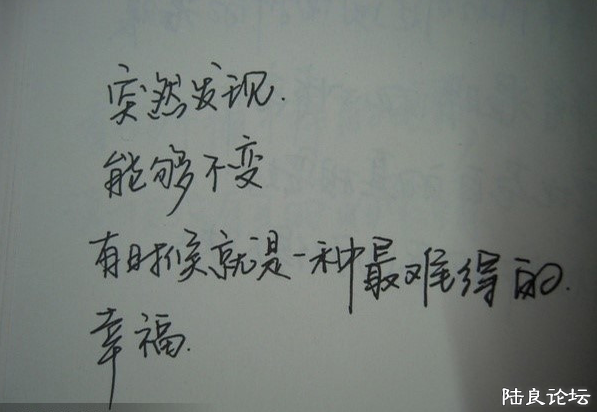 突然发现.
能够不变
有时候就是一种最难得的.
幸福.
陆良论坛